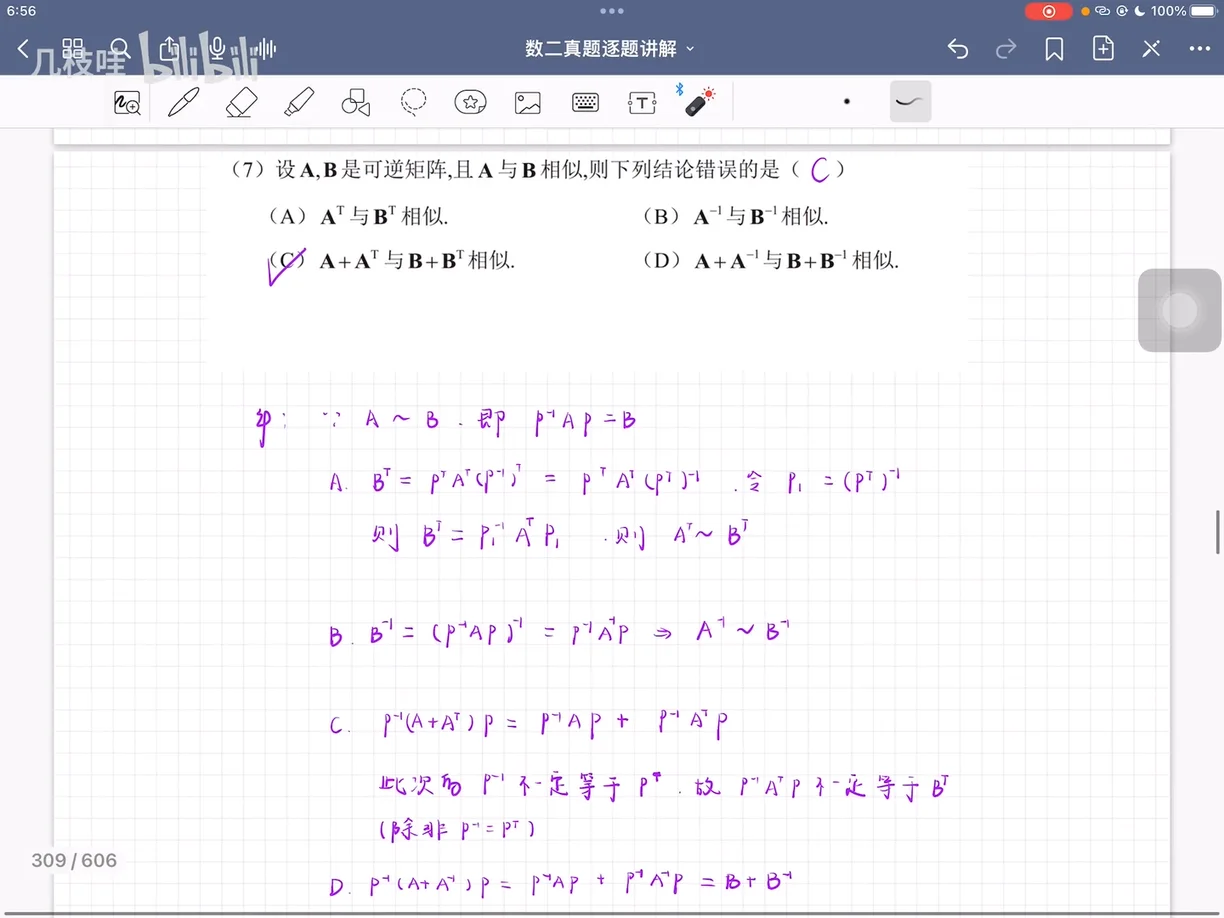 6:56
100%
几枝哇 bilibili
数二真题逐题讲解
(7) 设 A,B 是可逆矩阵,且 A 与 B 相似,则下列结论错误的是( C )
(A) Aᵀ 与 Bᵀ 相似. (B) A⁻¹ 与 B⁻¹ 相似.
(C) A+Aᵀ 与 B+Bᵀ 相似. (D) A+A⁻¹ 与 B+B⁻¹ 相似.
∵ A ~ B . 即 P⁻¹AP = B
A. Bᵀ = PᵀAᵀ(P⁻¹)ᵀ = PᵀAᵀ(Pᵀ)⁻¹ . 令 P₁ = (Pᵀ)⁻¹
则 Bᵀ = P₁⁻¹AᵀP₁ . 则 Aᵀ ~ Bᵀ
B. B⁻¹ = (P⁻¹AP)⁻¹ = P⁻¹A⁻¹P ⇒ A⁻¹ ~ B⁻¹
C. P⁻¹(A+Aᵀ)P = P⁻¹AP + P⁻¹AᵀP
此次的 P⁻¹ 不一定等于 Pᵀ . 故 P⁻¹AᵀP 不一定等于 Bᵀ
(除非 P⁻¹ = Pᵀ)
309 / 606
D. P⁻¹(A+A⁻¹)P = P⁻¹AP + P⁻¹A⁻¹P = B + B⁻¹